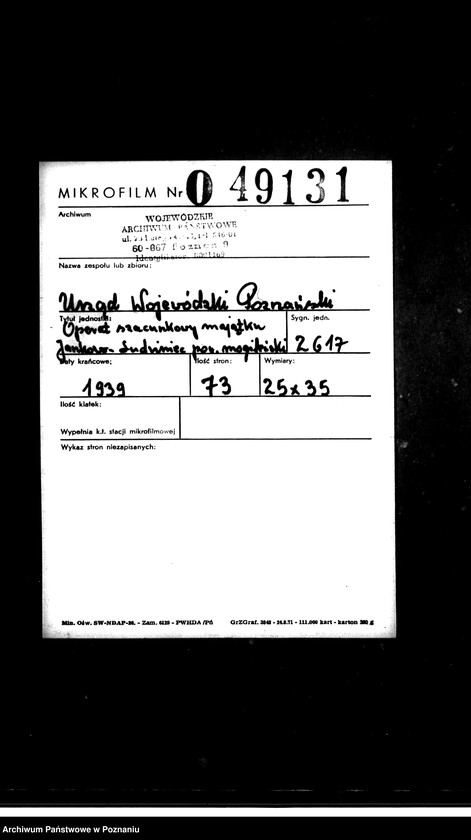 MIKROFILM Nr O 49131
Archiwum
WOJEWÓDZKIE
ARCHIWUM PAŃSTWOWE
ul. 23 Lutego
60-967 Poznań 9
Nazwa zespołu lub zbioru:
Urząd Wojewódzki Poznański
Tytuł jednostki: Sygn. jedn.
Operat szacunkowy majątku
Jankowo- pow. mogileński 2617
Daty krańcowe: Ilość stron: Wymiary:
1939 73 25x35
Ilość klatek:
Wypełnia k.ł. stacji mikrofilmowej
Wykaz stron niezapisanych:
Min. Ośw. SW-NDAP-36. - Zam. - PWHDA /Pń GrZGraf. - 111.000 kart - karton g
Archiwum Państwowe w Poznaniu